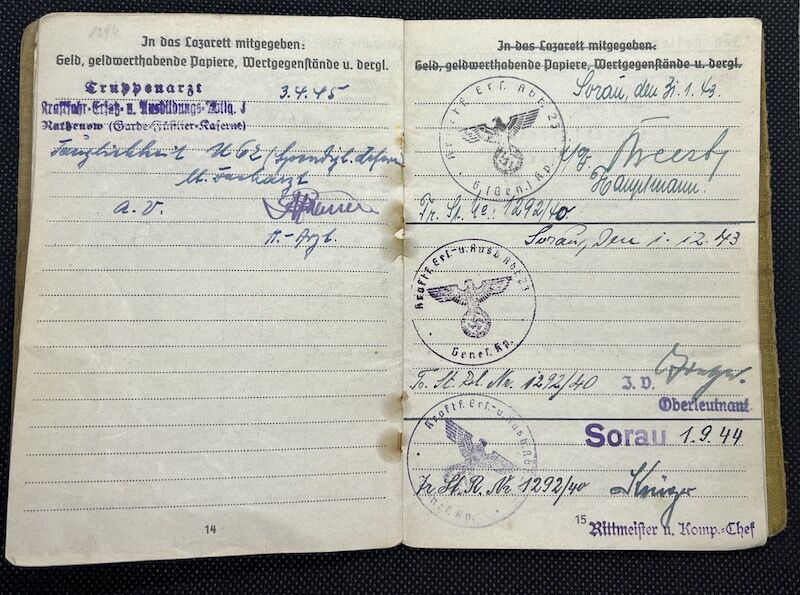 1294
In das Lazarett mitgegeben:
Geld, geldwerthabende Papiere, Wertgegenstände u. dergl.
Truppenarzt
3.4.45
Kraftfahr-Ersatz- u. Ausbildungs-Abtlg. 3
Rathenow (Garde-Füsilier-Kaserne)
Tauglichkeit
a.v.
14
In das Lazarett mitgegeben:
Geld, geldwerthabende Papiere, Wertgegenstände u. dergl.
Sorau, den 31.1.43
Kraftf. Ers. Abt. 23
Hauptmann.
Tr. St. 1292/40
Sorau, den 1.12.43
Kraftf. Ers.- u. Ausb. Abt. 23
Genes. Kp.
Tr. St. Rl. Nr. 1292/40
I. V.
Oberleutnant
Sorau 1.9.44
Kraftf. Ers.- u. Ausb. Abt.
Tr. St. R. Nr 1292/40
Krüger
15
Rittmeister u. Komp.-Chef